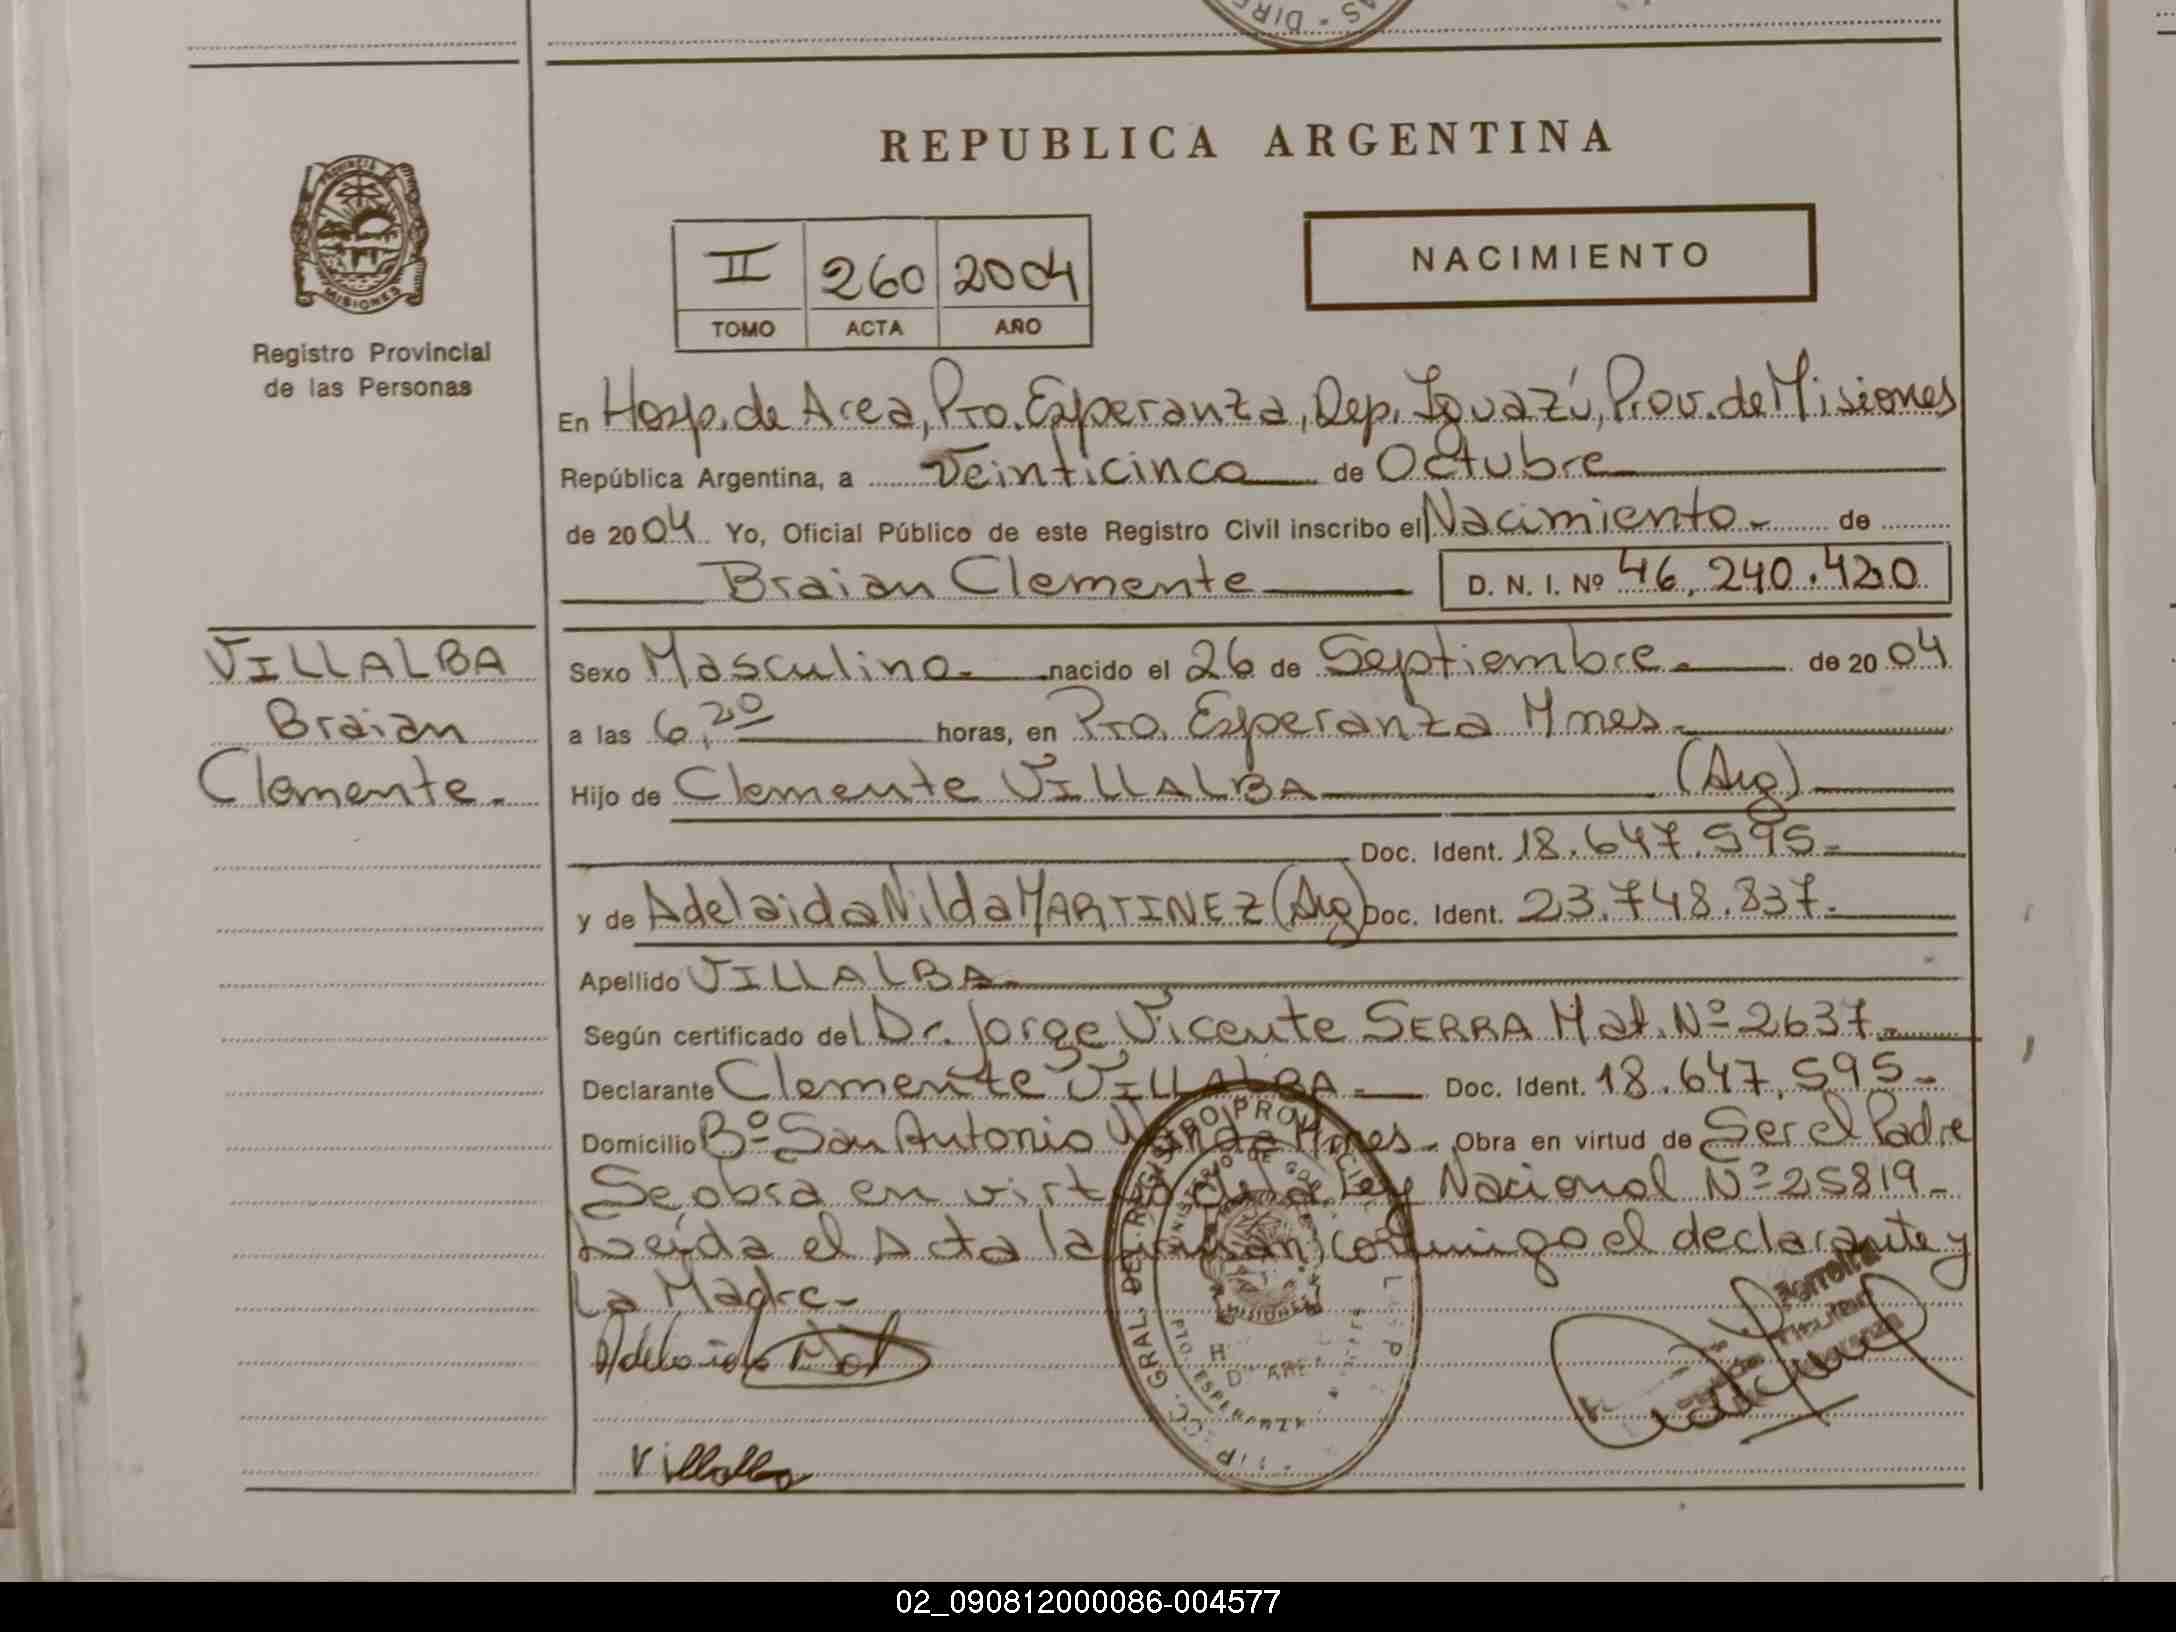 DIRE
REPUBLICA ARGENTINA
PROVINCIA
MISIONES
Registro Provincial
de las Personas
II 260 2004
TOMO ACTA AÑO
NACIMIENTO
En Hosp. de Area, Pto. Esperanza, Dep. Iguazú, Prov. de Misiones
República Argentina, a Veinticinco de Octubre
de 2004 Yo, Oficial Público de este Registro Civil inscribo el Nacimiento - de
Braian Clemente D. N. I. Nº 46.240.420
VILLALBA
Braian
Clemente.
Sexo Masculino - nacido el 26 de Septiembre - de 2004
a las 6,20 horas, en Pto. Esperanza Mnes -
Hijo de Clemente VILLALBA (Arg)
Doc. Ident. 18.647.595-
y de Adelaida Nilda MARTINEZ (Arg) Doc. Ident. 23.748.837-
Apellido VILLALBA -
Según certificado del Dr. Jorge Vicente SERRA Mat. Nº 2637 -
Declarante Clemente VILLALBA - Doc. Ident. 18.647.595-
Domicilio Bº San Antonio Wanda Mnes - Obra en virtud de Ser el Padre
Se obra en virtud de la Ley Nacional Nº 25819 -
Leída el Acta la firman conmigo el declarante y
La Madre -
Adelaida
Villalba
Ferreira
Titular
Esperanza
GRAL. DEL REGISTRO PROVINCIAL
MINISTERIO DE GOB
MISIONES
PTO. ESPERANZA
02_090812000086-004577